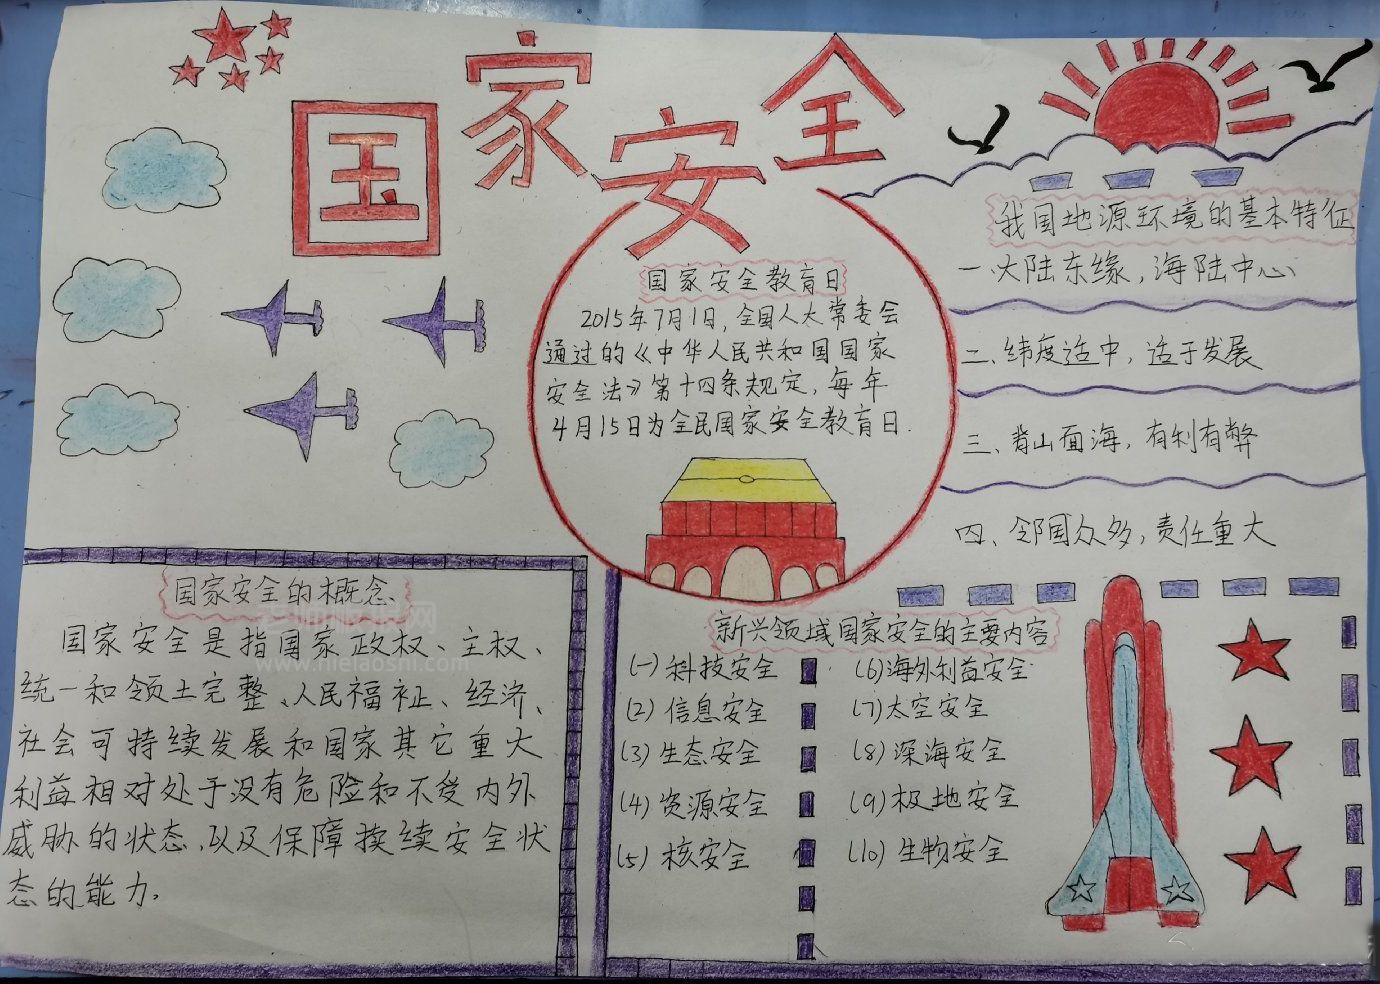 国家安全
国家安全教育日
2015年7月1日,全国人大常委会
通过的《中华人民共和国国家
安全法》第十四条规定,每年
4月15日为全民国家安全教育日.
我国地源环境的基本特征
一、大陆东缘,海陆中心
二、纬度适中,适于发展
三、背山面海,有利有弊
四、邻国众多,责任重大
国家安全的概念
国家安全是指国家政权、主权、
统一和领土完整、人民福祉、经济、
社会可持续发展和国家其它重大
利益相对处于没有危险和不受内外
威胁的状态,以及保障持续安全状
态的能力。
新兴领域国家安全的主要内容
(一)科技安全
(2)信息安全
(3)生态安全
(4)资源安全
(5)核安全
(6)海外利益安全
(7)太空安全
(8)深海安全
(9)极地安全
(10)生物安全
www.nielaoshi.com